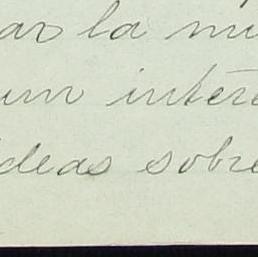 ar la mu
un interé
ideas sobre